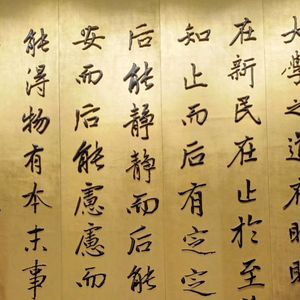 大學之道在明明
在新民在止於至
知止而后有定定
后能靜靜而后能
安而后能慮慮而
能得物有本末事